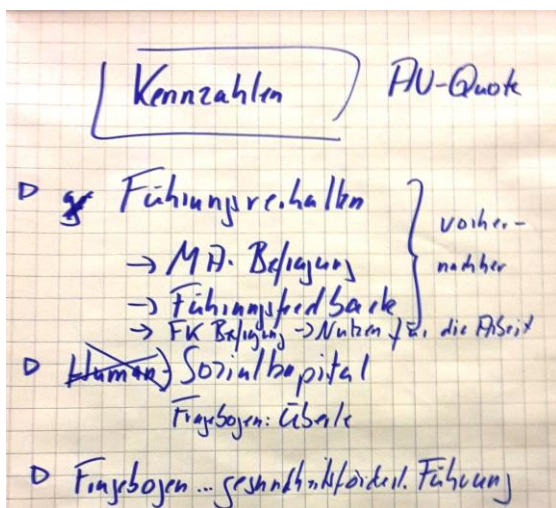 Kennzahlen AU-Quote
Führungsverhalten
→ MA-Befragung
→ Führungsfeedback
vorher-
nachher
→ FK Befragung → Nutzen für die Arbeit
Human- Sozialkapital
Fragebogen:
Fragebogen... gesundheitsförderl. Führung